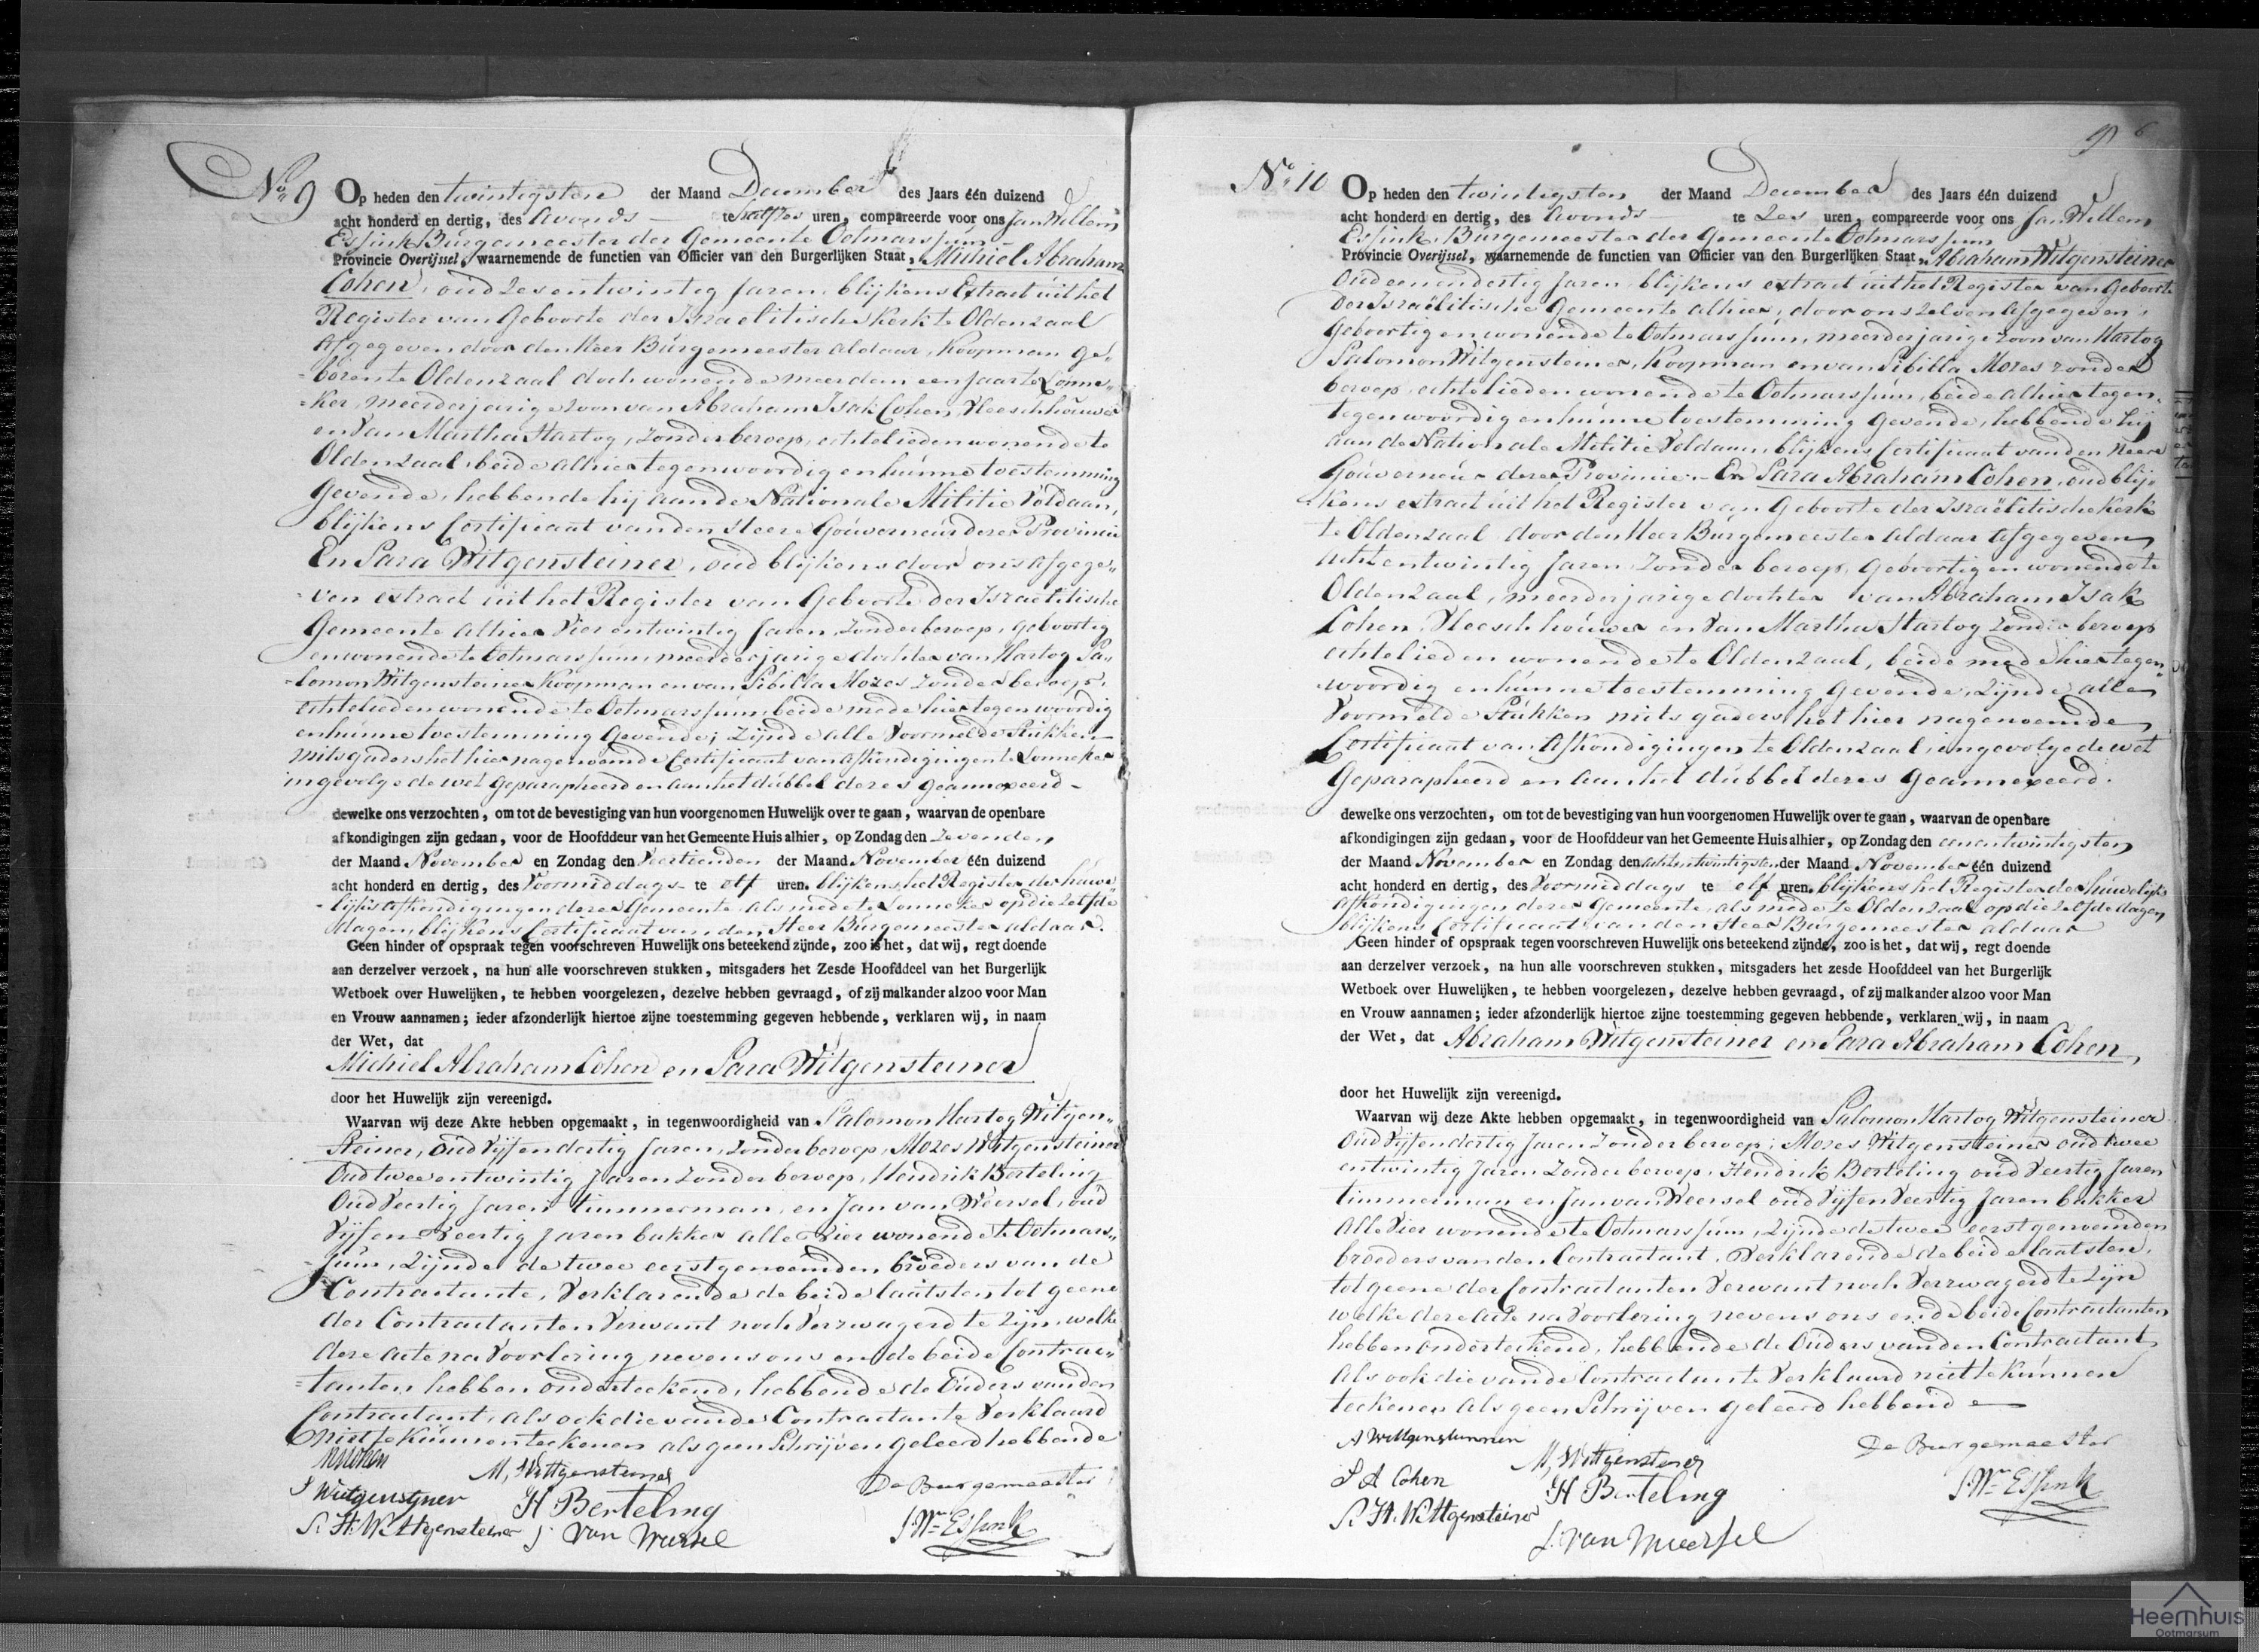 No 9 Op heden den twintigsten der Maand December des Jaars één duizend
acht honderd en dertig, des Avonds te halfzes uren, compareerde voor ons Jan Willem
Essink Burgemeester der Gemeente Ootmarssum
Provincie Overijssel, waarnemende de functien van Officier van den Burgerlijken Staat, Michiel Abraham
Cohen, oud zesentwintig Jaren, blijkens Extract uit het
Register van Geboorte der Israelitische Kerk te Oldenzaal
afgegeven door den Heer Burgemeester aldaar, Koopman ge„
„boren te Oldenzaal doch wonende meer dan een Jaar te Lonne„
„ker, meerderjarige zoon van Abraham Isak Cohen, Vleeschhouwer
en van Martha Hartog, zonder beroep, echtelieden wonende te
Oldenzaal, beide alhier tegenwoordig en hunne toestemming
gevende, hebbende hij aan de Nationale Militie Voldaan,
blijkens Certificaat van den Heere Gouverneur dezer Provincie
En Sara Witgensteiner, oud blijkens door ons afgege„
„ven extract uit het Register van Geboorte der Israëlitische
Gemeente alhier Vier entwintig Jaren, zonder beroep, geboortig
en wonende te Ootmarssum, meerderjarige dochter van Hartog Sa„
„lomon Witgensteiner Koopman en van Sibilla Mozes zonder beroep,
echtelieden wonende te Ootmarssum, beide mede hier tegenwoordig
en hunne toestemming gevende; Zijnde alle Voormelde Stukken
mitsgaders het hier nagenoemde Certificaat van Afkondigingen te Lonneker
ingevolge de wet geparapheerd en aan het dubbel dezes geannexeerd -
dewelke ons verzochten, om tot de bevestiging van hun voorgenomen Huwelijk over te gaan, waarvan de openbare
afkondigingen zijn gedaan, voor de Hoofddeur van het Gemeente Huis alhier, op Zondag den Zevenden
der Maand November en Zondag den Veertienden der Maand November één duizend
acht honderd en dertig, des Voormiddags te elf uren. blijkens het Register der huwe„
„lijks Afkondigingen dezer Gemeente als mede te Lonneker op die zelfde
dagen, blijkens Certificaat van den Heer Burgemeester aldaar.
Geen hinder of opspraak tegen voorschreven Huwelijk ons beteekend zijnde, zoo is het, dat wij, regt doende
aan derzelver verzoek, na hun alle voorschreven stukken, mitsgaders het Zesde Hoofddeel van het Burgerlijk
Wetboek over Huwelijken, te hebben voorgelezen, dezelve hebben gevraagd, of zij malkander alzoo voor Man
en Vrouw aannamen; ieder afzonderlijk hiertoe zijne toestemming gegeven hebbende, verklaren wij, in naam
der Wet, dat
Michiel Abraham Cohen en Sara Witgensteiner
door het Huwelijk zijn vereenigd.
Waarvan wij deze Akte hebben opgemaakt, in tegenwoordigheid van Salomon Hartog Witgen„
Steiner, oud Vijfendertig Jaren, zonder beroep, Mozes Witgensteiner
Oud twee entwintig Jaren zonder beroep, Hendrik Berteling
Oud Veertig Jaren timmerman, en Jan van Weersel, oud
Vijfen Veertig Jaren bakker alle Vier wonende te Ootmars„
„sum, Zijnde de twee eerstgenoemden broeders van de
Contractante, Verklarende de beide laatsten tot geene
der Contractanten Verwant noch Verzwagerd te zijn, welke
deze acte na Voorlezing nevens ons en de beide Contrac„
„tanten hebben onderteekend, hebbende de Ouders van den
Contractant, als ook die van de Contractante Verklaard
niet te kunnen teekenen als geen Schrijven geleerd hebbende
M Cohen
M, Wittgensteiner
De Burgemeester
S Wittgensteiner
H Berteling
J. Wm Essink
S. H. Wittgensteiner
J van Weersel
9 6
No 10 Op heden den twintigsten der Maand December des Jaars één duizend
acht honderd en dertig, des Avonds te Zes uren, compareerde voor ons Jan Willem
Essink, Burgemeester der Gemeente Ootmarssum
Provincie Overijssel, waarnemende de functien van Officier van den Burgerlijken Staat, Abraham Witgensteiner
Oud eenendertig Jaren, blijkens extract uit het Register van Geboorte
der Israëlitische Gemeente alhier, door ons zelven afgegeven,
Geboortig en wonende te Ootmarssum, meerderjarige Zoon van Hartog
Salomon Witgensteiner, Koopman en van Sibilla Mozes zonder
beroep echtelieden wonende te Ootmarssum, beide alhier tegen„
tegenwoordig en hunne toestemming gevende, hebbende hij
aan de Nationale Militie Voldaan, blijkens Certificaat van den Heere
Gouverneur dezer Provincie. - En Sara Abraham Cohen, oud blij„
kens extract uit het Register van Geboorte der Israëlitische Kerk
te Oldenzaal, door den Heer Burgemeester aldaar afgegeven
acht entwintig Jaren, Zonder beroep, geboortig en wonende te
Oldenzaal, meerderjarige dochter van Abraham Isak
Cohen, Vleeschhouwer en van Martha Hartog zonder beroep
echtelieden wonende te Oldenzaal, beide mede hier tegen„
woordig en hunne toestemming gevende, Zijnde alle
Voormelde Stukken mitsgaders het hier nagenoemde
Certificaat van Afkondigingen te Oldenzaal, ingevolge de wet
geparapheerd en aan het dubbel dezes geannexeerd.
dewelke ons verzochten, om tot de bevestiging van hun voorgenomen Huwelijk over te gaan, waarvan de openbare
afkondigingen zijn gedaan, voor de Hoofddeur van het Gemeente Huis alhier, op Zondag den eenentwintigsten
der Maand November en Zondag den achtentwintigsten der Maand November één duizend
acht honderd en dertig, des Voormiddags te elf uren. blijkens het Register der Huwelijks
Afkondigingen dezer Gemeente, als mede te Oldenzaal op die zelfde dagen,
blijkens Certificaat van den Heer Burgemeester aldaar
Geen hinder of opspraak tegen voorschreven Huwelijk ons beteekend zijnde, zoo is het, dat wij, regt doende
aan derzelver verzoek, na hun alle voorschreven stukken, mitsgaders het zesde Hoofddeel van het Burgerlijk
Wetboek over Huwelijken, te hebben voorgelezen, dezelve hebben gevraagd, of zij malkander alzoo voor Man
en Vrouw aannamen; ieder afzonderlijk hiertoe zijne toestemming gegeven hebbende, verklaren wij, in naam
der Wet, dat Abraham Witgensteiner en Sara Abraham Cohen,
door het Huwelijk zijn vereenigd.
Waarvan wij deze Akte hebben opgemaakt, in tegenwoordigheid van Salomon Hartog Witgensteiner
Oud Vijfendertig Jaren Zonder beroep, Mozes Witgensteiner oud twee
entwintig Jaren Zonder beroep, Hendrik Berteling oud Veertig Jaren
timmerman en Jan van Weersel oud Vijfen Veertig Jaren bakker
alle Vier wonende te Ootmarssum, Zijnde de twee eerstgenoemden
broeders van den Contractant. Verklarende de beide laatsten,
tot geene der Contractanten Verwant noch Verzwagerd te zijn
welke deze acte na Voorlezing nevens ons en de beide Contractanten
hebben onderteekend, hebbende de Ouders van den Contractant,
als ook die van de Contractante Verklaard niet te kunnen
teekenen als geen Schrijven geleerd hebbende
A Wittgensteiner
M, Wittgensteiner
De Burgemeester
S A Cohen
H Berteling
J. Wm Essink
S. H. Wittgensteiner
J. van Weersel
Heemhuis
Ootmarsum